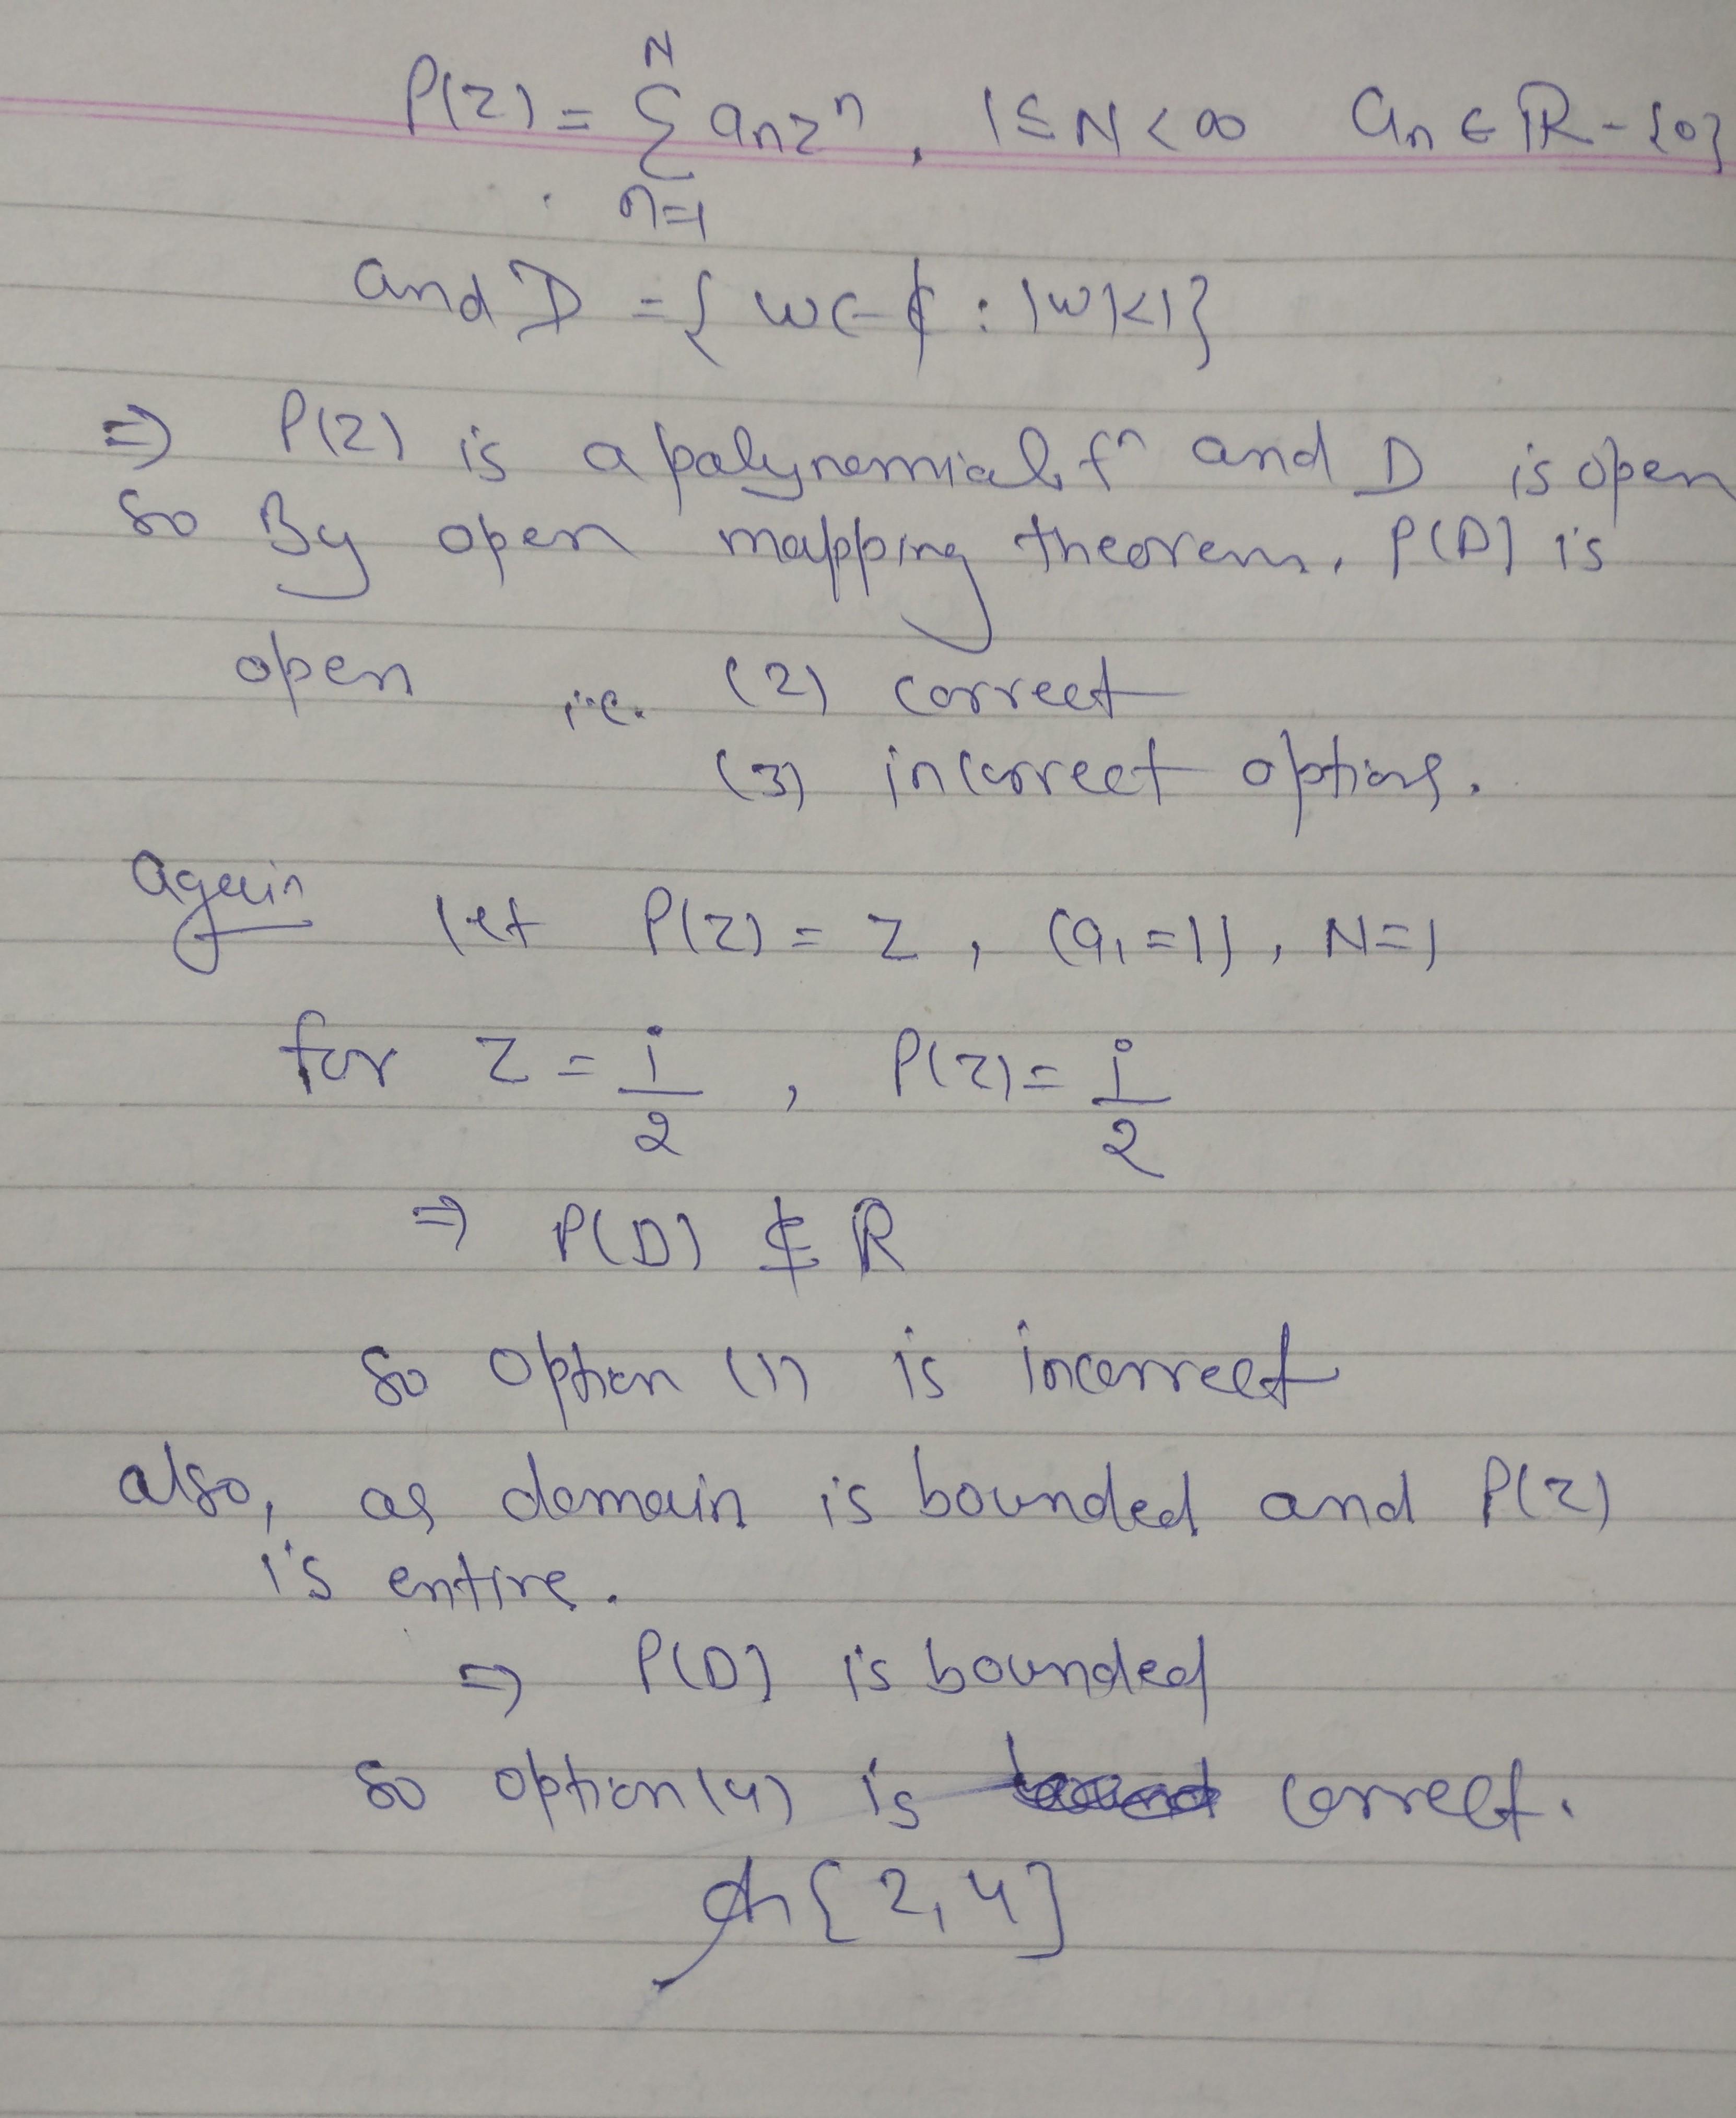 P(z) = N Σ n=1 aₙzⁿ, 1 ≤ N < ∞ aₙ ∈ ℝ - {0}
and D = {w ∈ ℂ : |w| < 1}
⇒ P(z) is a polynomial fⁿ and D is open
so By open mapping theorem, P(D) is
open i.e. (2) correct
(3) incorrect options.
again let P(z) = z, (a₁ = 1), N = 1
for z = i/2, P(z) = i/2
⇒ P(D) ⊄ ℝ
so option (1) is incorrect
also, as domain is bounded and P(z)
is entire.
⇒ P(D) is bounded
so option (4) is correct.
{2, 4}